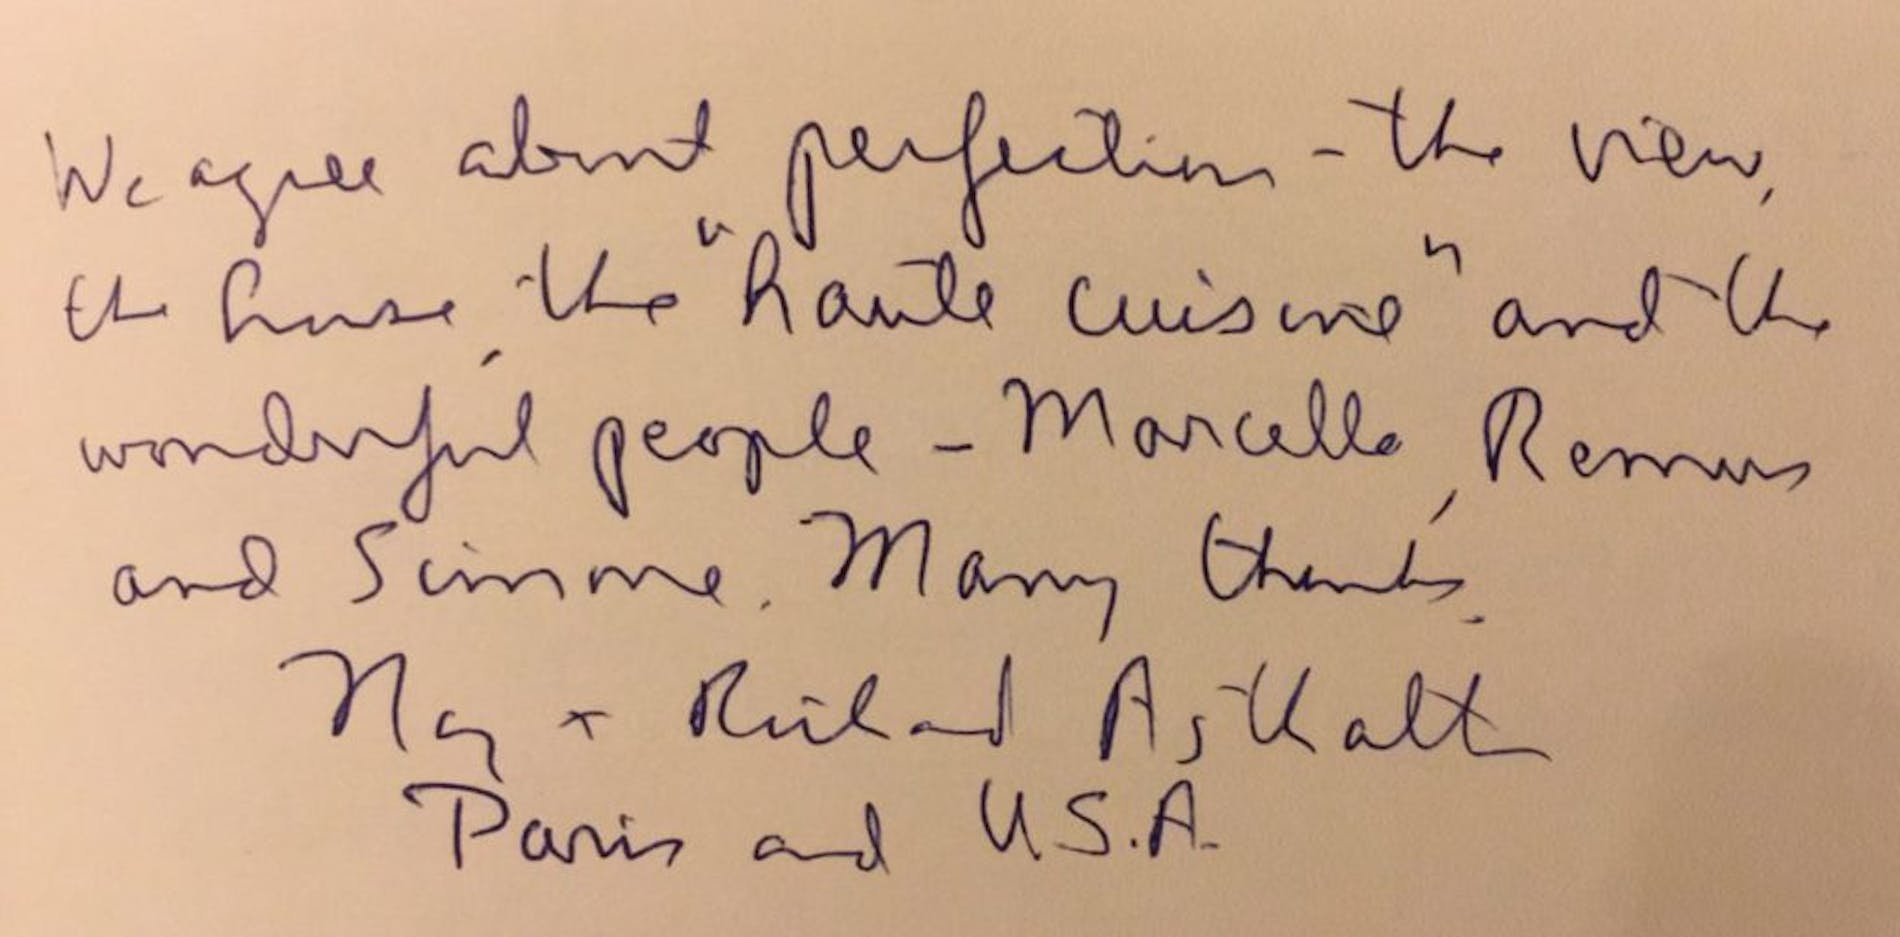 We agree about perfection - the view,
the house, the "haute cuisine" and the
wonderful people - Marcello, Remus
and Simone. Many thanks.
+ Richard
Paris and U.S.A.